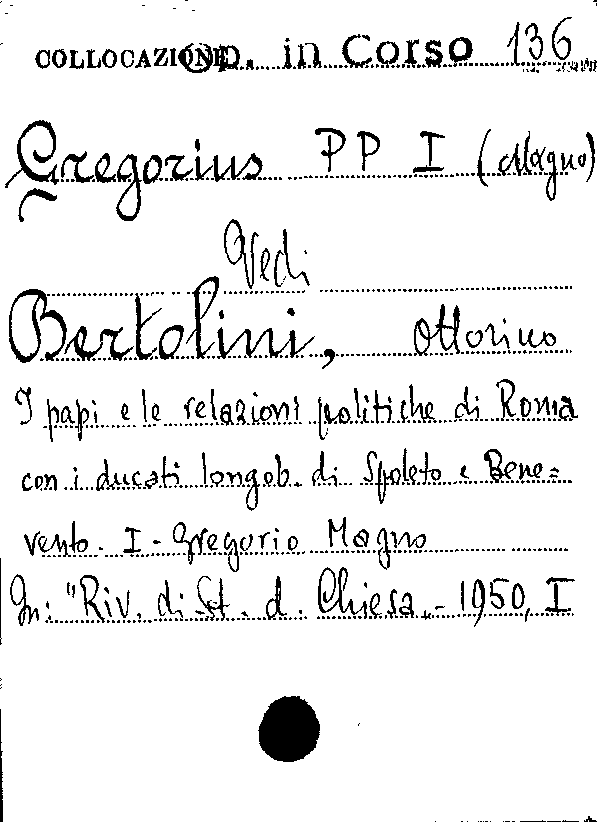 COLLOCAZIONE Op. in Corso 136
Gregorius PP I (Magno)
Vedi
Bertolini, Ottorino
I papi e le relazioni politiche di Roma
con i ducati longob. di Spoleto e Bene=
vento. I - Gregorio Magno
In: "Riv. di St. d. Chiesa„ - 1950, I